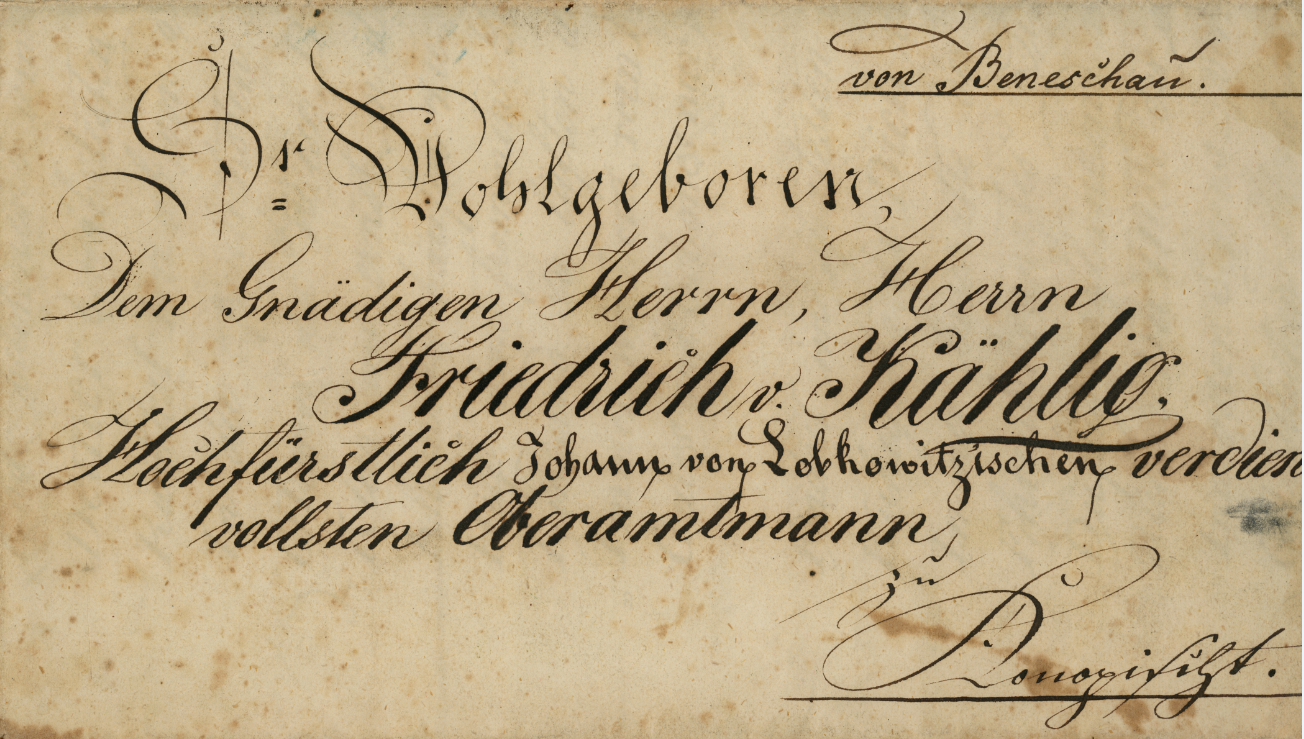 von Beneschau.
Sr Wohlgeboren,
Dem Gnädigen Herrn, Herrn
Friedrich v. Kählig.
Hochfürstlich Johann von Lobkowitzischen verdien
vollsten Oberamtmann,
zu
Konopischt.